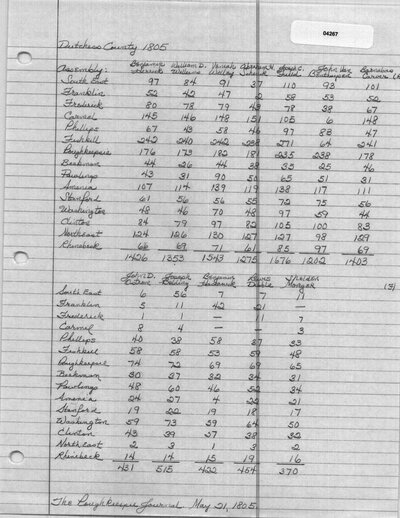 04267
Dutchess County 1805
Assembly: Benjamin Herrick William D. Williams Veniah Wolsey Abraham H. Schenk Joseph C. Field John Van Benthuysen Barnabas Carver
South East 97 84 91 37 110 93 101
Franklin 52 42 47 2 58 53 52
Frederick 80 78 79 43 78 38 67
Carmel 145 146 148 151 105 6 148
Phillips 67 43 58 46 97 88 47
Fishkill 242 240 242 238 271 64 241
Poughkeepsie 176 173 182 181 235 238 178
Beekman 44 26 44 38 33 25 46
Pawlings 43 31 90 51 65 51 31
Amenia 107 114 139 119 138 117 111
Stanford 61 56 56 55 72 75 56
Washington 48 46 70 48 97 59 44
Clinton 84 79 97 82 105 100 83
Northeast 124 126 130 127 127 98 129
Rhinebeck 66 69 71 61 85 97 69
1426 1353 1543 1275 1676 1202 1403
John D. Joseph Benjamin Sheldon
South East 6 56 7 7 11 (3)
Franklin 5 11 42 21 —
Frederick 1 1 — 11 7
Carmel 8 4 — — 3
Phillips 40 38 58 37 33
Fishkill 58 58 53 59 48
Poughkeepsie 74 72 69 69 65
Beekman 30 37 32 34 31
Pawlings 48 60 46 52 34
Amenia 24 27 4 22 21
Stanford 19 22 19 18 17
Washington 59 73 39 64 50
Clinton 43 39 37 38 32
Northeast 2 3 1 3 2
Rhinebeck 14 14 15 19 16
431 515 422 454 370
The Poughkeepsie Journal May 21, 1805.